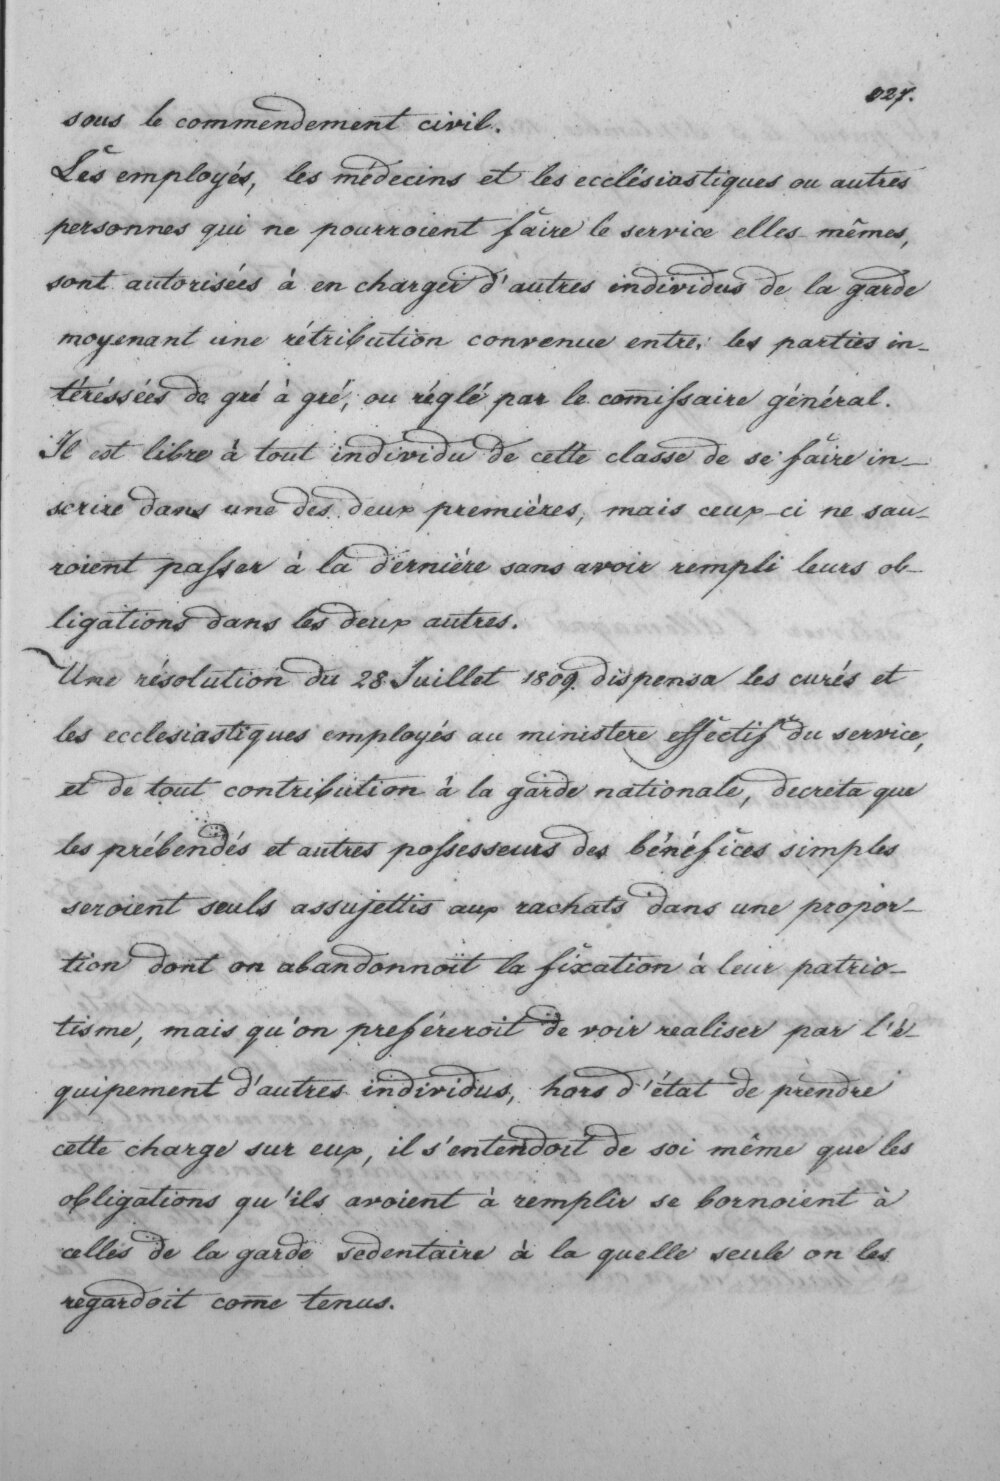 327.
sous le commendement civil.
Les employés, les médecins et les ecclésiastiques ou autres
personnes qui ne pourroient faire le service elles-mêmes,
sont autorisées à en charger d'autres individus de la garde
moyenant une rétribution convenue entre, les parties in-
téréssées de gré à gré, ou réglé par le comissaire général.
Il est libre à tout individu de cette classe de se faire in-
scrire dans une des deux premières, mais ceux-ci ne sau-
roient passer à la dernière sans avoir rempli leurs ob-
ligations dans les deux autres.
Une résolution du 28 Juillet 1809. dispensa les curés et
les ecclesiastiques employés au ministere effectif du service,
et de tout contribution à la garde nationale, decreta que
les prébendés et autres possesseurs des bénéfices simples
seroient seuls assujettis aux rachats dans une propor-
tion dont on abandonnoit la fixation à leur patrio-
tisme, mais qu'on preféreroit de voir realiser par l'é-
quipement d'autres individus, hors d'état de prendre
cette charge sur eux, il s'entendoit de soi même que les
obligations qu'ils avoient à remplir se bornoient à
celles de la garde sedentaire à la quelle seule on les
regardoit come tenus.